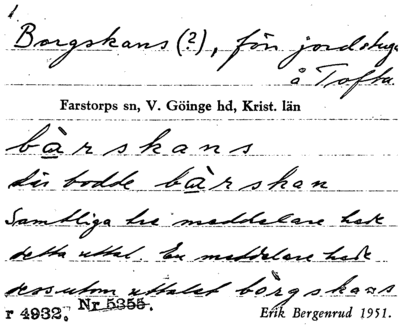 1
Borgskans (?), förr jordstuga
å Tofta.
Farstorps sn, V. Göinge hd, Krist. län
bàrskans
där bodde bàrskan
Samtliga tre meddelare hade
detta uttal. En meddelare hade
dessutom uttalet borgskans
r 4932. Nr 5355. Erik Bergenrud 1951.